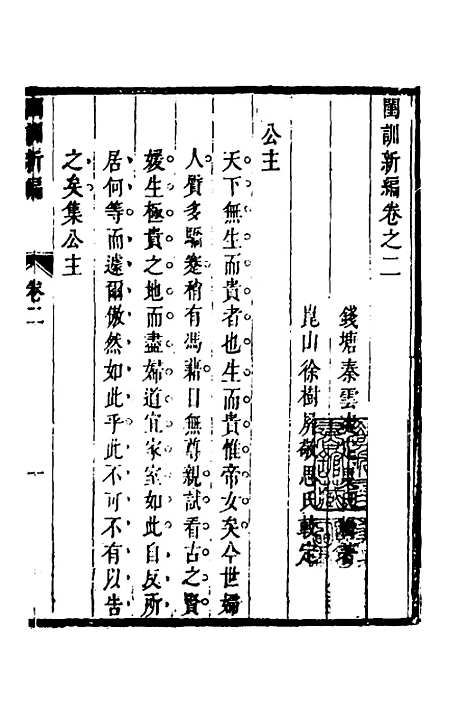 閨訓新編卷之二
錢塘秦雲
崑山徐樹屏敬思氏較定
公主
天下無生而貴者也生而貴惟帝女矣今世婦
人質多驕蹇稍有馮藉目無尊親試看古之賢
媛生極貴之地而盡婦道宜家室如此自反所
居何等而遽爾傲然如此乎此不可不有以告
之矣集公主
閨訓新編
卷二
一